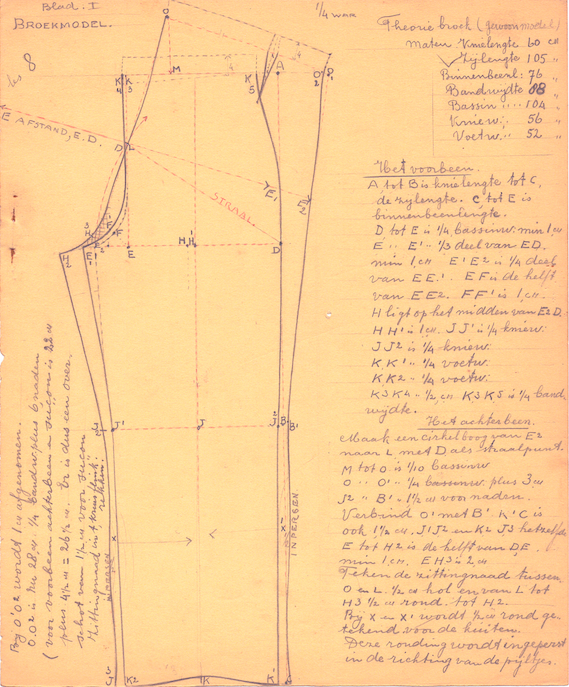 Blad. I
BROEKMODEL.
les 8
1/4 WAR
Theorie broek (gewoon model)
Maten Knielengte 60 cM
Zylengte 105 "
Binnenbeenl: 76 "
Bandwydte 88 "
Bassin .... 104 "
Kniew: 56 "
Voetw: 52 "
Het voorbeen.
A tot B is knielengte tot C,
de zylengte. C tot E is
binnenbeenlengte.
D tot E is 1/4 bassinw: min 1 cM
E " E' " 1/3 deel van ED.
min 1 cM E'E2 is 1/4 deel
van EE'. EF is de helft
van EE2. FF' is 1 cM.
H ligt op het midden van E2 D.
HH' is 1 cM. JJ' is 1/4 kniew:
JJ2 is 1/4 kniew:
KK' " 1/4 voetw:
KK2 " 1/4 voetw:
K3K4 " 1/2 cM. K3K5 is 1/4 band.
wydte.
Het achterbeen.
Maak een cirkelboog van E2
naar L, met D als straalpunt.
M tot O is 1/10 bassinw
O " O' " 1/4 bassinw. plus 3 cM
J2 " B' " 1 1/2 cM voor naden.
Verbind O' met B'. K'C is
ook 1 1/2 cM. J'J2 en K2 J3 hetzelfde
E tot H2 is de helft van DE.
min 1 cM. EH3 is 2 cM
Teken de zittingnaad tussen
O en L. 1/2 cM hol en van L tot
H3 1/2 cM rond tot H2.
By X en X' wordt 1/2 cM rond ge-
tekend voor de kuiten.
Deze ronding wordt ingeperst
in de richting van de pyltjes.
E AFSTAND, E.D.
STRAAL.
INPERSEN
By O'O2 wordt 1 cM afgenomen.
O.O2 is nu 28 cM. 1/4 bandw. plus 6 naden
(voor voorbeen achterbeen en suçon is 22 cM
plus 4 1/2 cM = 26 1/2 cM. Er is dus een over.
schot van 1 1/2 cM voor suçon